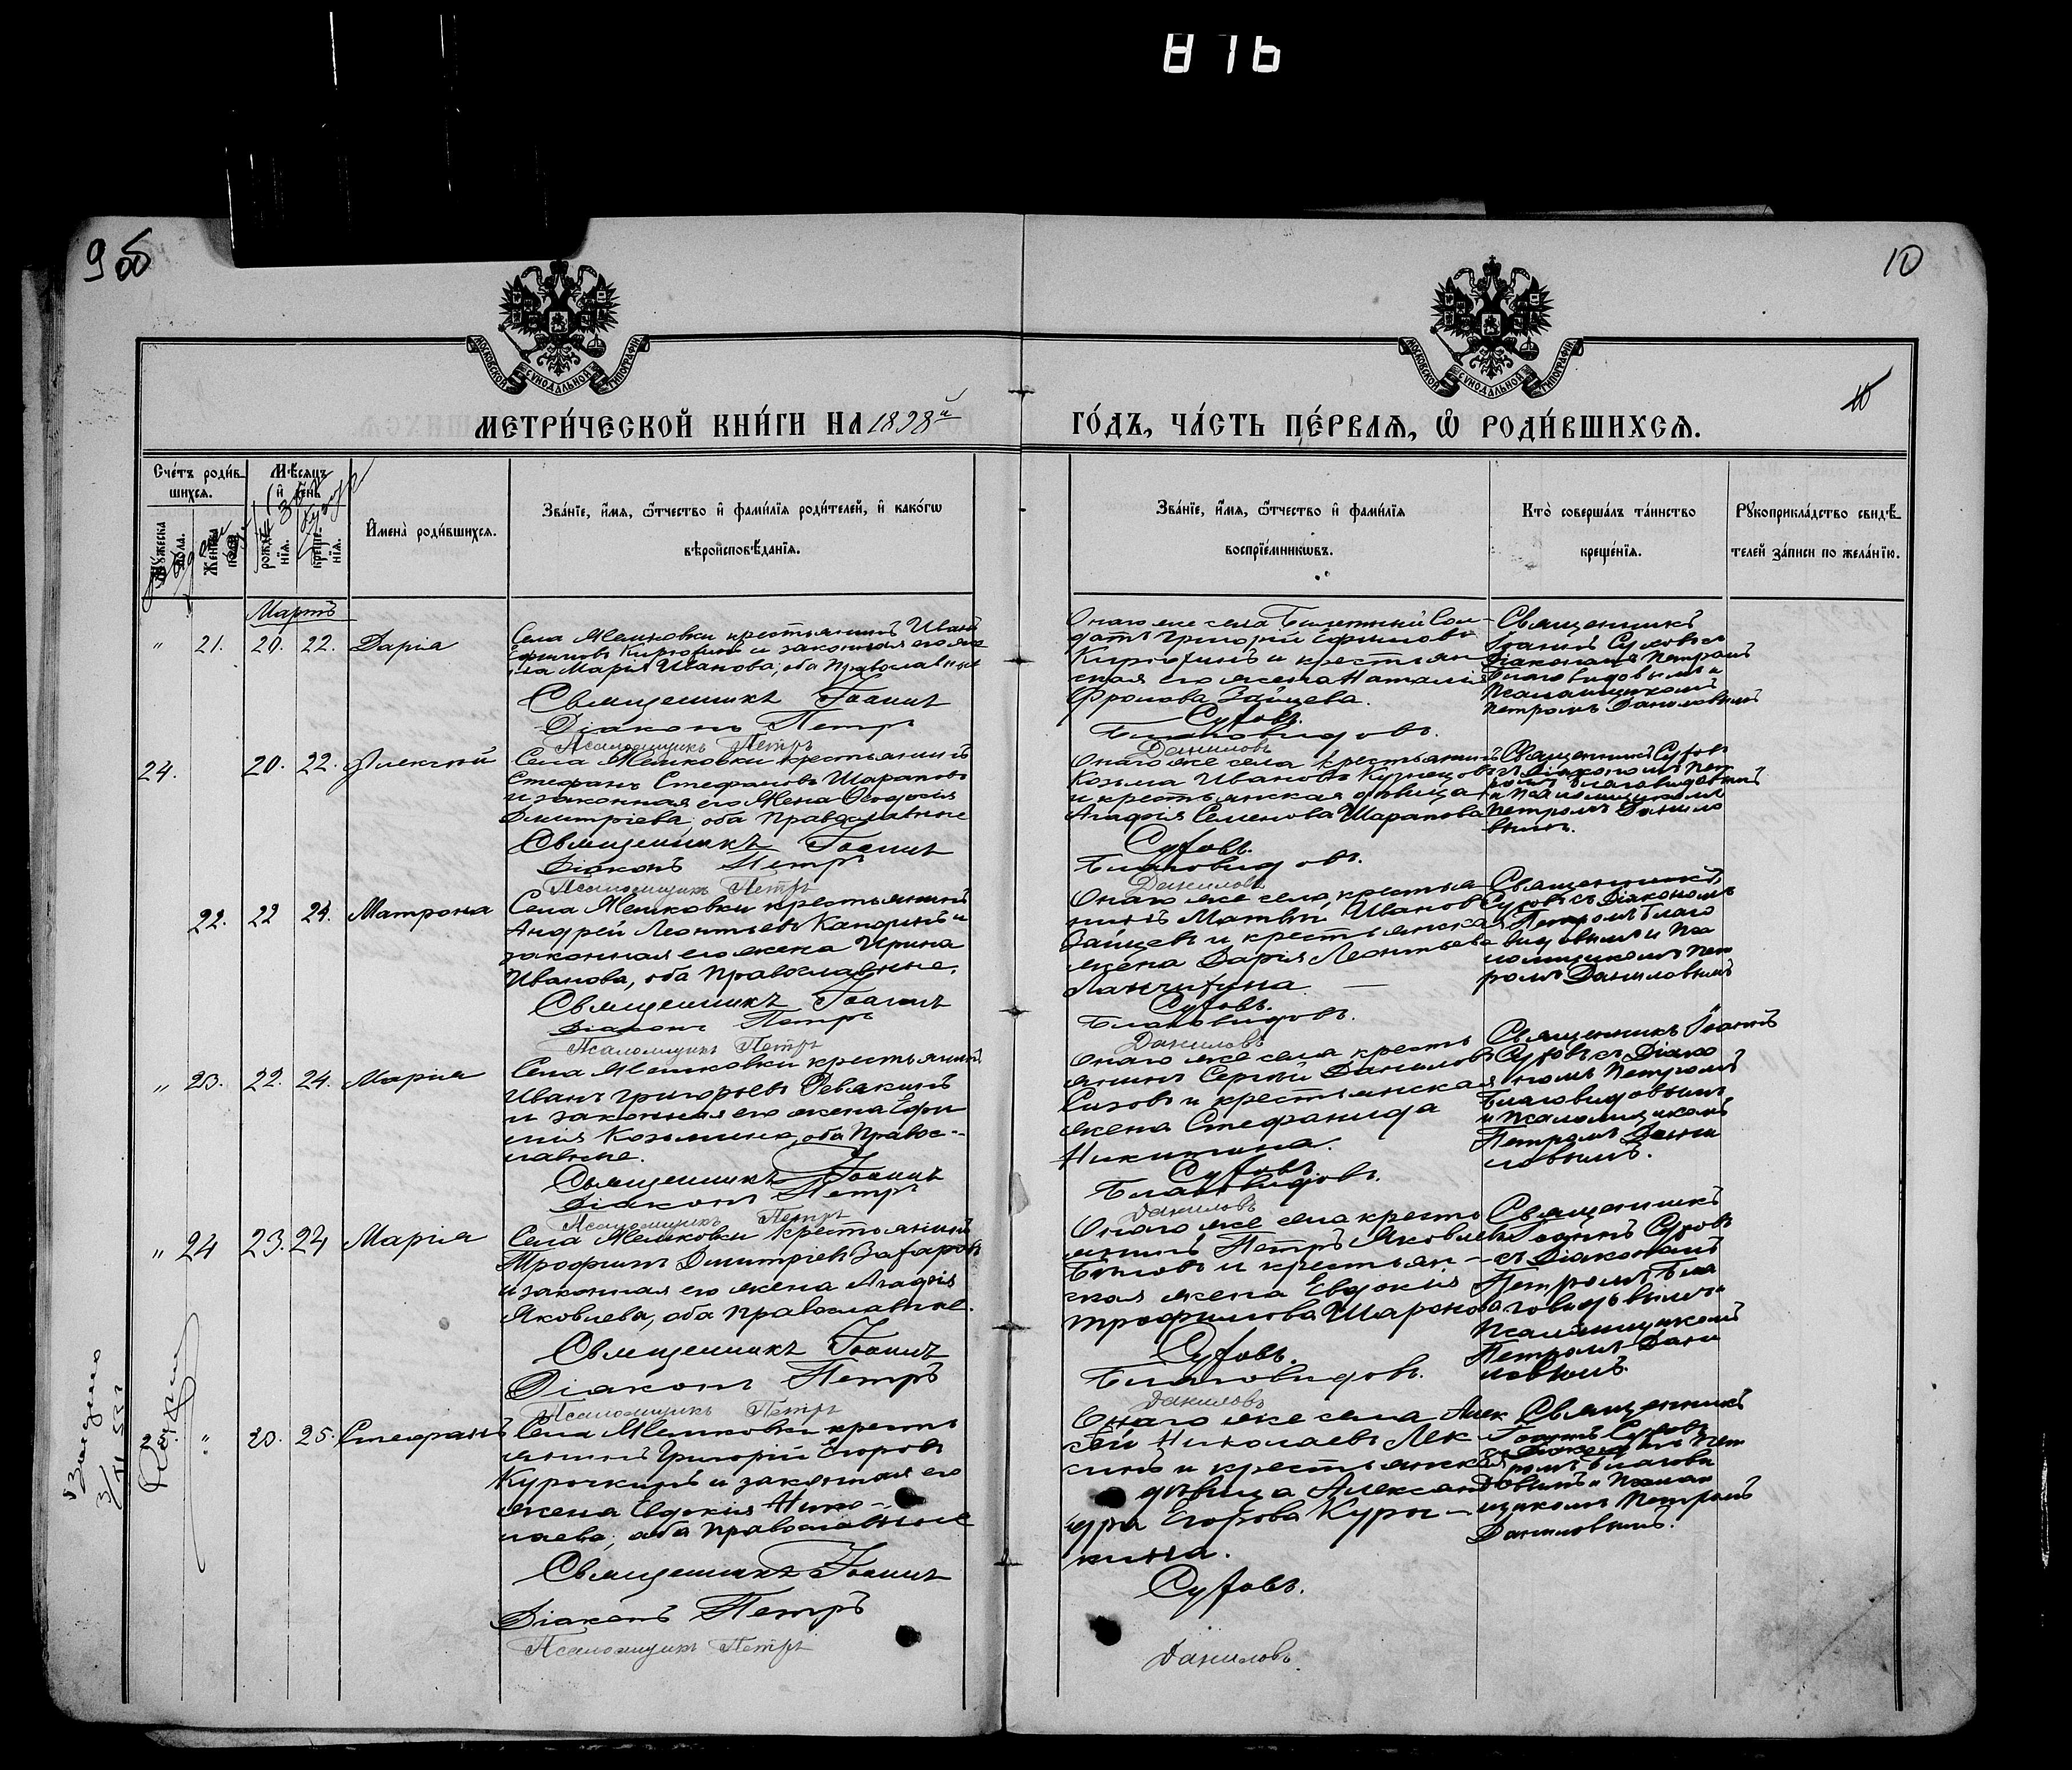 876
9 об
10
МОСКОВСКОЙ СѴНОДАЛЬНОЙ ТИПОГРАФІИ
МОСКОВСКОЙ СѴНОДАЛЬНОЙ ТИПОГРАФІИ
10
МЕТРИ́ЧЕСКОЙ КНИ́ГИ НА 1898й
ГО́ДЪ, ЧА́СТЬ ПЕ́РВАЯ, Ѡ РОДИ́ВШИХСЯ.
Сче́тъ роди́в-
шихся.
Мѣ́сяцъ
и де́нь
Му́жеска
по́ла.
Же́нска
рожде́
нїя.
креще́
нїя.
Имена̀ роди́вшихся.
Зва́нїе, и́мя, ѻ҆́тчество и фами́лїя роди́телей, и како́гѡ
вѣроисповѣ́данїя.
Зва́нїе, и́мя, ѻ҆́тчество и фами́лїя
воспрїе́мникѡвъ.
Кто̀ соверша́лъ та́инство
креще́нїя.
Рꙋкоприкла́дство свидѣ́-
телей за́писи по жела́нїю.
Мартъ
" 21. 20. 22. Дарія
Села Мешковки крестьянинъ Иванъ
Ефимовъ Кирюхинъ и законная его же
на Марія Иванова, оба Православные
Священникъ Іоаннъ
Діаконъ Петръ
Псаломщикъ Петръ
Онаго же села Билетный Сол-
датъ Григорій Ефимовъ
Кирюхинъ и крестьян
ская его жена Наталія
Фролова Зайцева.
Суховъ.
Благовидовъ.
Даниловъ
Священникъ
Іоаннъ Суховъ съ
Діакономъ Петромъ
Благовидовымъ и
Псаломщикомъ
Петромъ Даниловымъ
24. 20. 22. Алексій
Села Мешковки крестьянинъ
Стефанъ Стефановъ Шараповъ
и законная его жена Ѳеодосія
Дмитріева, оба Православные
Священникъ Іоаннъ
Діаконъ Петръ
Псаломщикъ Петръ
Онаго же села крестьянинъ
Козьма Ивановъ Кузнецовъ
и крестьянская дѣвица
Агафія Семенова Шарапова
Суховъ.
Благовидовъ.
Даниловъ
Священникъ Суховъ
съ Діакономъ Пет
ромъ Благовидовымъ
и Псаломщикомъ
Петромъ Данило
вымъ.
22. 22 24. Матрона
Села Мешковки крестьянинъ
Андрей Леонтьевъ Кандинъ и
законная его жена Ирина
Иванова, оба Православные.
Священникъ Іоаннъ
Діаконъ Петръ
Псаломщикъ Петръ
Онаго же села крестья-
нинъ Матвій Ивановъ
Зайцевъ и крестьянская
жена Дарія Леонтьева
Суховъ.
Благовидовъ.
Даниловъ
Священникъ
Суховъ съ Діакономъ
Петромъ Благо
видовымъ и Пса
ломщикомъ Пет
ромъ Даниловымъ
" 23. 22. 24. Марія
Села Мешковки крестьянинъ
Иванъ Григорьевъ Ревякинъ
и законная его жена Ефи
мія Козьмина, оба Правос-
лавные.
Священникъ Іоаннъ
Діаконъ Петръ
Псаломщикъ Петръ
Онаго же села кресть
янинъ Сергѣй Даниловъ
Сизовъ и крестьянская
жена Стефанида
Никитина.
Суховъ.
Благовидовъ.
Даниловъ
Священникъ Іоаннъ
Суховъ съ Діако
номъ Петромъ
Благовидовымъ
и Псаломщикомъ
Петромъ Дани
ловымъ.
" 24 23. 24 Марія
Села Мешковки крестьянинъ
Трофимъ Дмитріевъ Захаровъ
и законная его жена Агафія
Яковлева, оба православные.
Священникъ Іоаннъ
Діаконъ Петръ
Псаломщикъ Петръ
Онаго же села кресть
янинъ Петръ Яковлевъ
Бѣловъ и крестьян-
ская жена Евдокія
Трофимова Шаронова
Суховъ.
Благовидовъ.
Даниловъ
Священникъ
Іоаннъ Суховъ
съ Діакономъ
Петромъ Бла
говидовымъ и
Псаломщикомъ
Петромъ Дани
ловымъ.
25. " 23. 25. Стефанъ
Села Мешковки кресть
янинъ Григорій Егоровъ
Курочкинъ и законная его
жена Евдокія Нико-
лаева, оба православные
Священникъ Іоаннъ
Діаконъ Петръ
Псаломщикъ Петръ
Онаго же села Алек
сѣй Николаевъ Лек
синъ и крестьянская
дѣвица Алексан
дра Егорова Куроч-
кина.
Суховъ.
Даниловъ.
Священникъ
Іоаннъ Суховъ
съ Діакономъ Пет
ромъ Благови
довымъ и Псалом
щикомъ Петромъ
Даниловымъ.